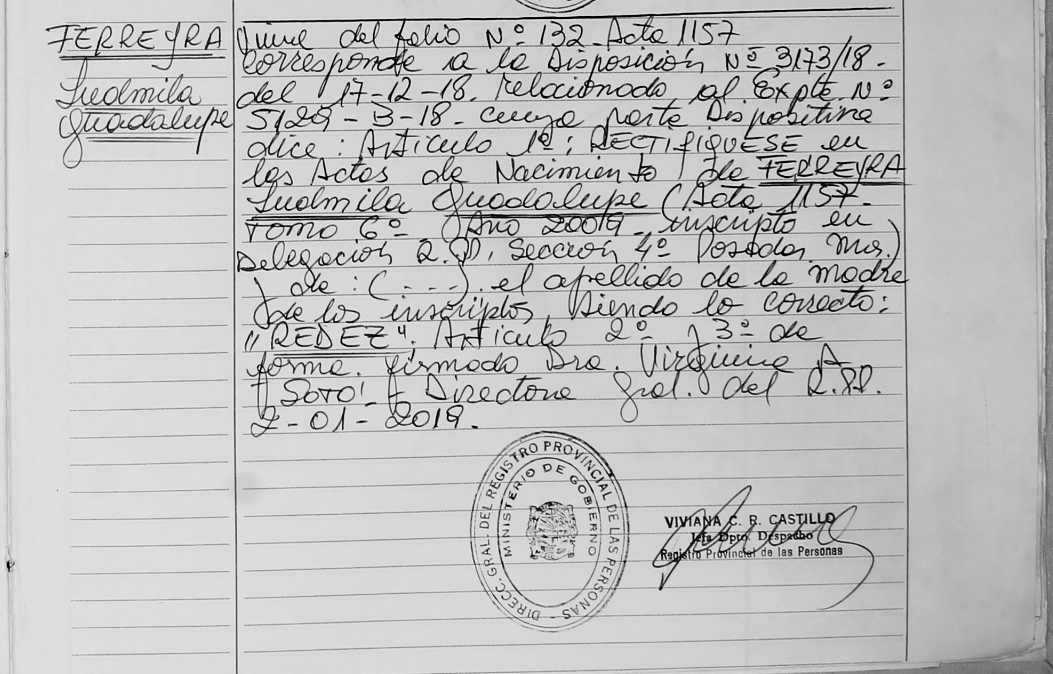 FERREYRA
Ludmila
Guadalupe
Viene del folio Nº 132 - Acta 1157
Corresponde a la Disposición Nº 3173/18 -
del 17-12-18. relacionado al Expte. Nº
5129 - B-18 - cuya parte Dispositiva
dice: Artículo 1º: RECTIFIQUESE en
las Actas de Nacimiento de FERREYRA
Ludmila Guadalupe (Acta 1157 -
Tomo 6º - Año 20019 - inscripto en
Delegación R.P. Sección 4º Posadas Mnes.)
de: (- - -) el apellido de la madre
de los inscriptos, siendo lo correcto:
"REDEZ". Artículo 2º y 3º de
forma. firmado Dra. Virginia A.
SOTO - Directora Gral. del R.P.
2-01-2019.
DIRECC. GRAL. DEL REGISTRO PROVINCIAL DE LAS PERSONAS -
MINISTERIO DE GOBIERNO
VIVIANA C. R. CASTILLO
Jefa Dpto. Despacho
Registro Provincial de las Personas